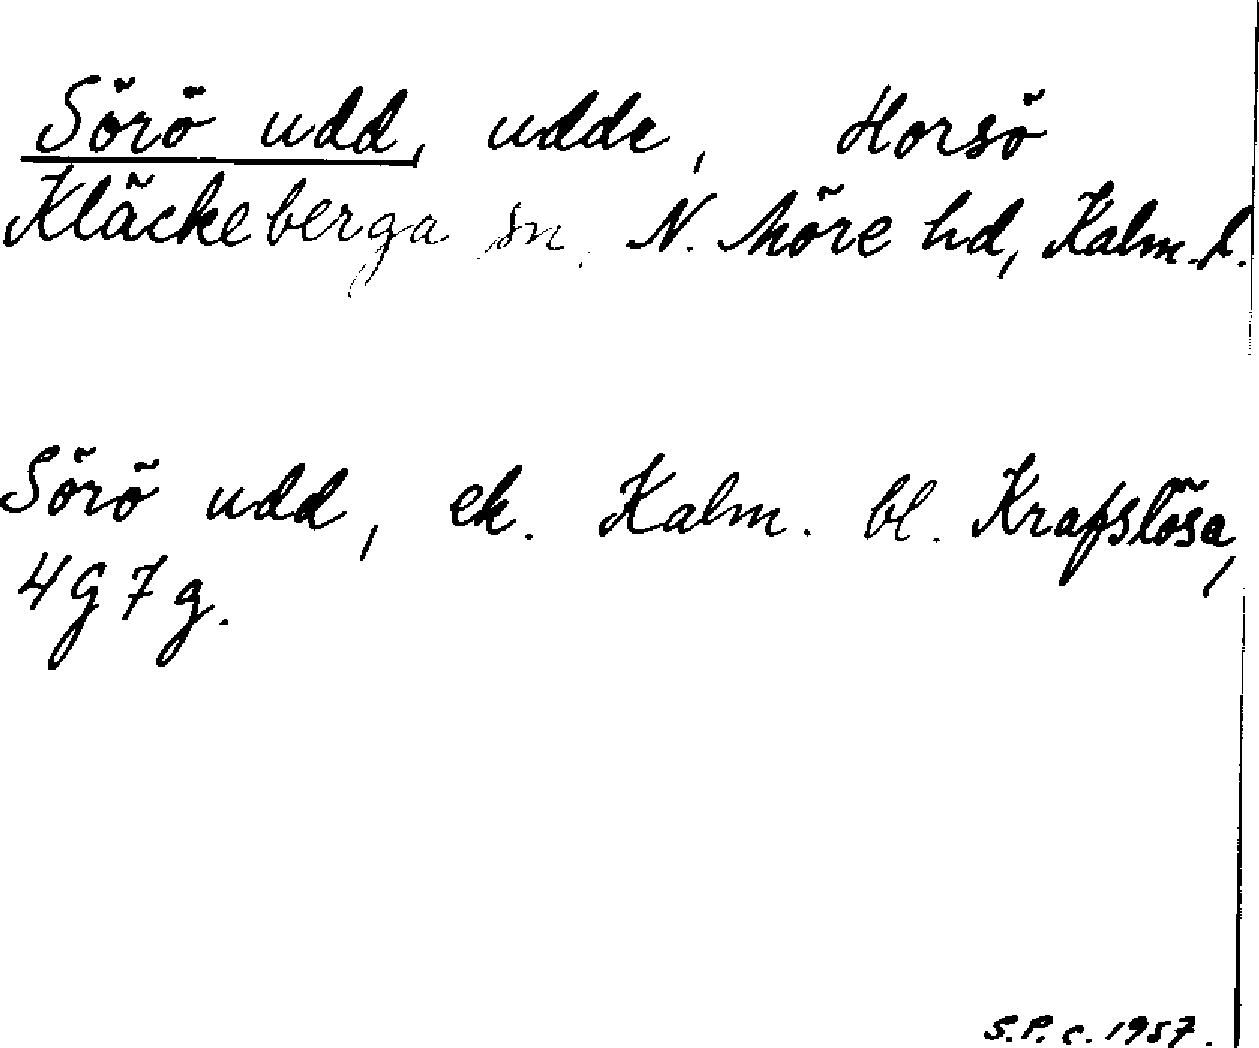 Sörö udd, udde, Horsö
Kläckeberga sn. N. Möre hd, Kalm. l.
Sörö udd, ek. Kalm. bl. Krafslösa,
4G7g.
S.P.c. 1957.